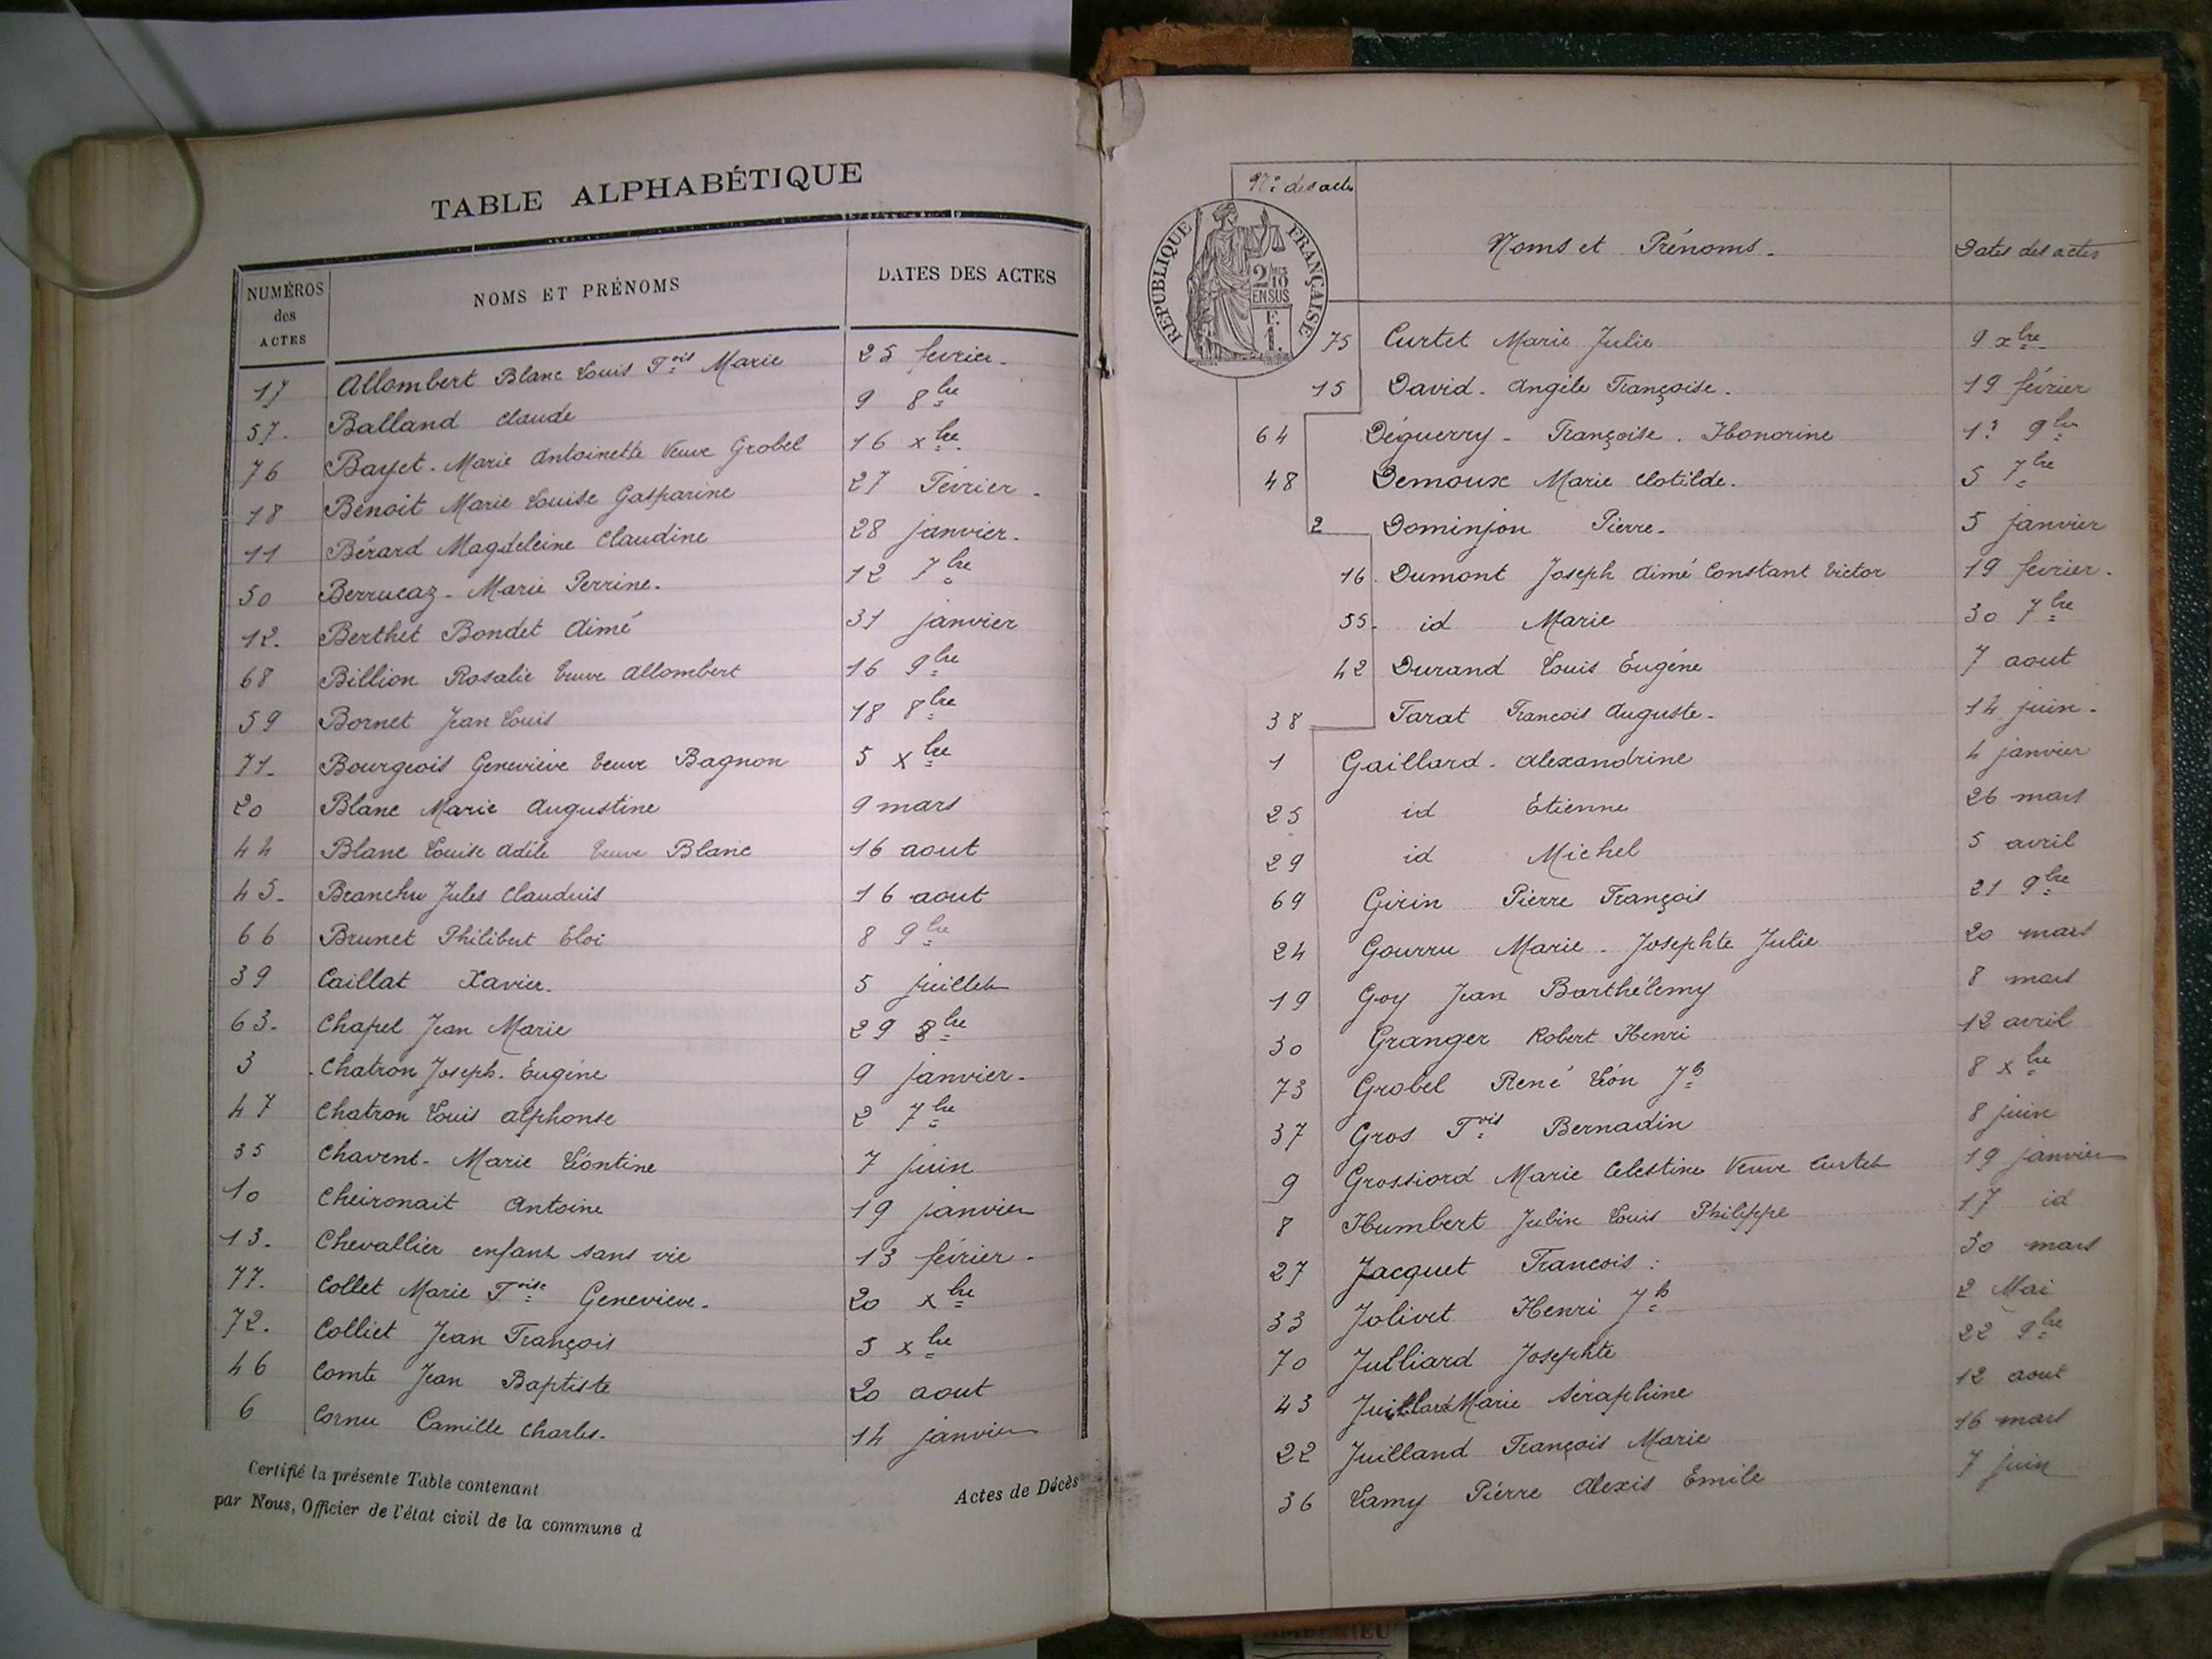 TABLE ALPHABÉTIQUE
NUMÉROS des ACTES
NOMS ET PRÉNOMS
DATES DES ACTES
17 Allombert Blanc Louis Fois Marie 25 fevrier.
57. Balland Claude 9 8bre
76 Bayet. Marie Antoinette Veuve Grobel 16 xbre.
18 Benoit Marie Louise Gasparine 27 Février.
11 Bérard Magdeleine Claudine 28 janvier.
50 Berrucaz. Marie Perrine. 12 7bre
12. Berthet Bondet Aimé 31 janvier
68 Billion Rosalie Veuve Allombert 16 9bre
59 Bornet Jean Louis 18 8bre
71. Bourgeois Geneviève Veuve Bagnon 5 xbre
20 Blanc Marie Augustine 9 mars
44 Blanc Louise Adèle Veuve Blanc 16 aout
45. Branchu Jules Claudius 16 aout
66 Brunet Philibert Eloi 8 9bre
39 Caillat Xavier. 5 juillet
63. Chapel Jean Marie 29 8bre
3 Chatron Joseph. Eugène 9 janvier.
47 Chatron Louis Alphonse 2 7bre
35 Chavent. Marie Léontine 7 juin
10 Cheironait Antoine 19 janvier
13. Chevallier enfant sans vie 13 février.
77. Collet Marie Foise Genevieve. 20 xbre
72. Colliet Jean François 5 xbre
46 Comte Jean Baptiste 20 aout
6 Cornu Camille Charles. 14 janvier
Certifié la présente Table contenant Actes de Décès
par Nous, Officier de l'état civil de la commune d
Nos des actes
Noms et Prénoms.
Dates des actes
RÉPUBLIQUE FRANÇAISE
2/10
EN SUS
F.
1.
75 Curtet Marie Julie 9 xbre
15 David. Angèle Françoise. 19 février
64 Déguerry. Françoise. Honorine 1er 9bre
48 Demoux Marie Clotilde. 5 7bre
2 Dominjon Pierre. 5 janvier
16. Dumont Joseph Aimé Constant Victor 19 fevrier.
55. id Marie 30 7bre
42 Durand Louis Eugène 7 aout
38 Farat Francois Auguste. 14 juin.
1 Gaillard. Alexandrine 4 janvier
25 id Étienne 26 mars
29 id Michel 5 avril
69 Girin Pierre François 21 9bre
24 Gourru Marie. Josephte Julie 20 mars
19 Goy Jean Barthélemy 8 mars
30 Granger Robert Henri 12 avril
73 Grobel René Léon Jh 8 xbre
37 Gros Fois Bernadin 8 juin
9 Grossiord Marie Celestine Veuve Curtet 19 janvier
8 Humbert Jubin Louis Philippe 17 id
27 Jacquet Francois. 30 mars
33 Jolivet Henri Jh 2 Mai
70 Julliard Josephte 22 9bre
43 Marie Séraphine 12 aout
22 Juilland François Marie 16 mars
36 Lamy Pierre Alexis Émile 7 juin